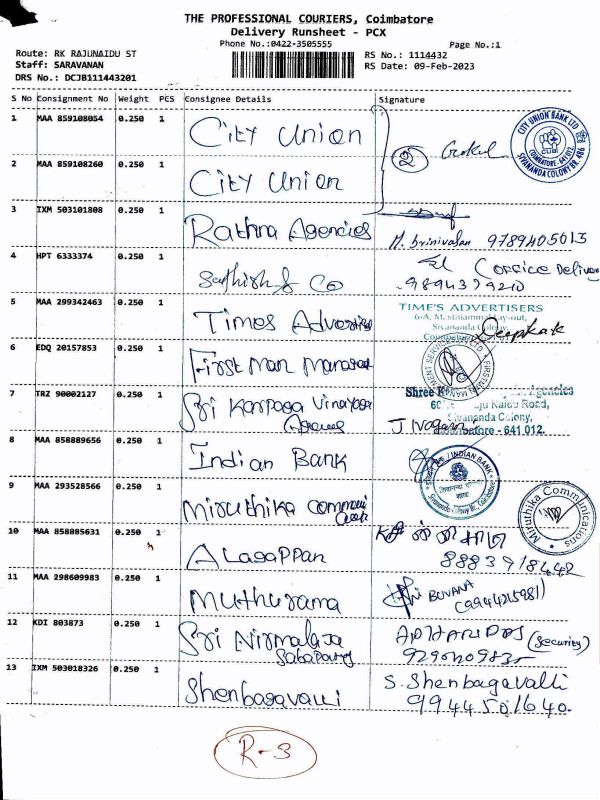 THE PROFESSIONAL COURIERS, Coimbatore
Delivery Runsheet - PCX
Phone No.:0422-3505555
Page No.:1
Route: RK RAJUNAIDU ST
RS No.: 1114432
Staff: SARAVANAN
RS Date: 09-Feb-2023
DRS No.: DCJB111443201
S No Consignment No Weight PCS Consignee Details Signature
1 MAA 859108054 0.250 1 City Union
Gokul
CITY UNION BANK LTD
CUB
COIMBATORE-641 012.
SIVANANDA COLONY BR. 486
2 MAA 859108260 0.250 1 City Union
3 IXM 503101808 0.250 1 Rathna Agencies
M. Srinivasan 9789405013
4 HPT 6333374 0.250 1 Sathish & Co
(office Delivery
9894379210
5 MAA 299342463 0.250 1 Times Advertise
TIME'S ADVERTISERS
Sivananda Colony,
Deepkak
6 EDQ 20157853 0.250 1 First Man Manag
7 TRZ 90002127 0.250 1 Sri Karpaga Vinayaga
Shree Agencies
Sivananda Colony,
Coimbatore - 641 012.
8 MAA 858889656 0.250 1 Indian Bank
INDIAN BANK
9 MAA 293528566 0.250 1 Miruthika Communi
Miruthika Communications
10 MAA 858885631 0.250 1 Alagappan
8883918442
11 MAA 298609983 0.250 1 Muthurama
BUVANA
(9944215981)
12 KDI 803873 0.250 1 Sri Nirmalaja
Sabapathy
(Security)
13 IXM 503018326 0.250 1 Shenbagavalli
S. Shenbagavalli
9944501640.
R-3